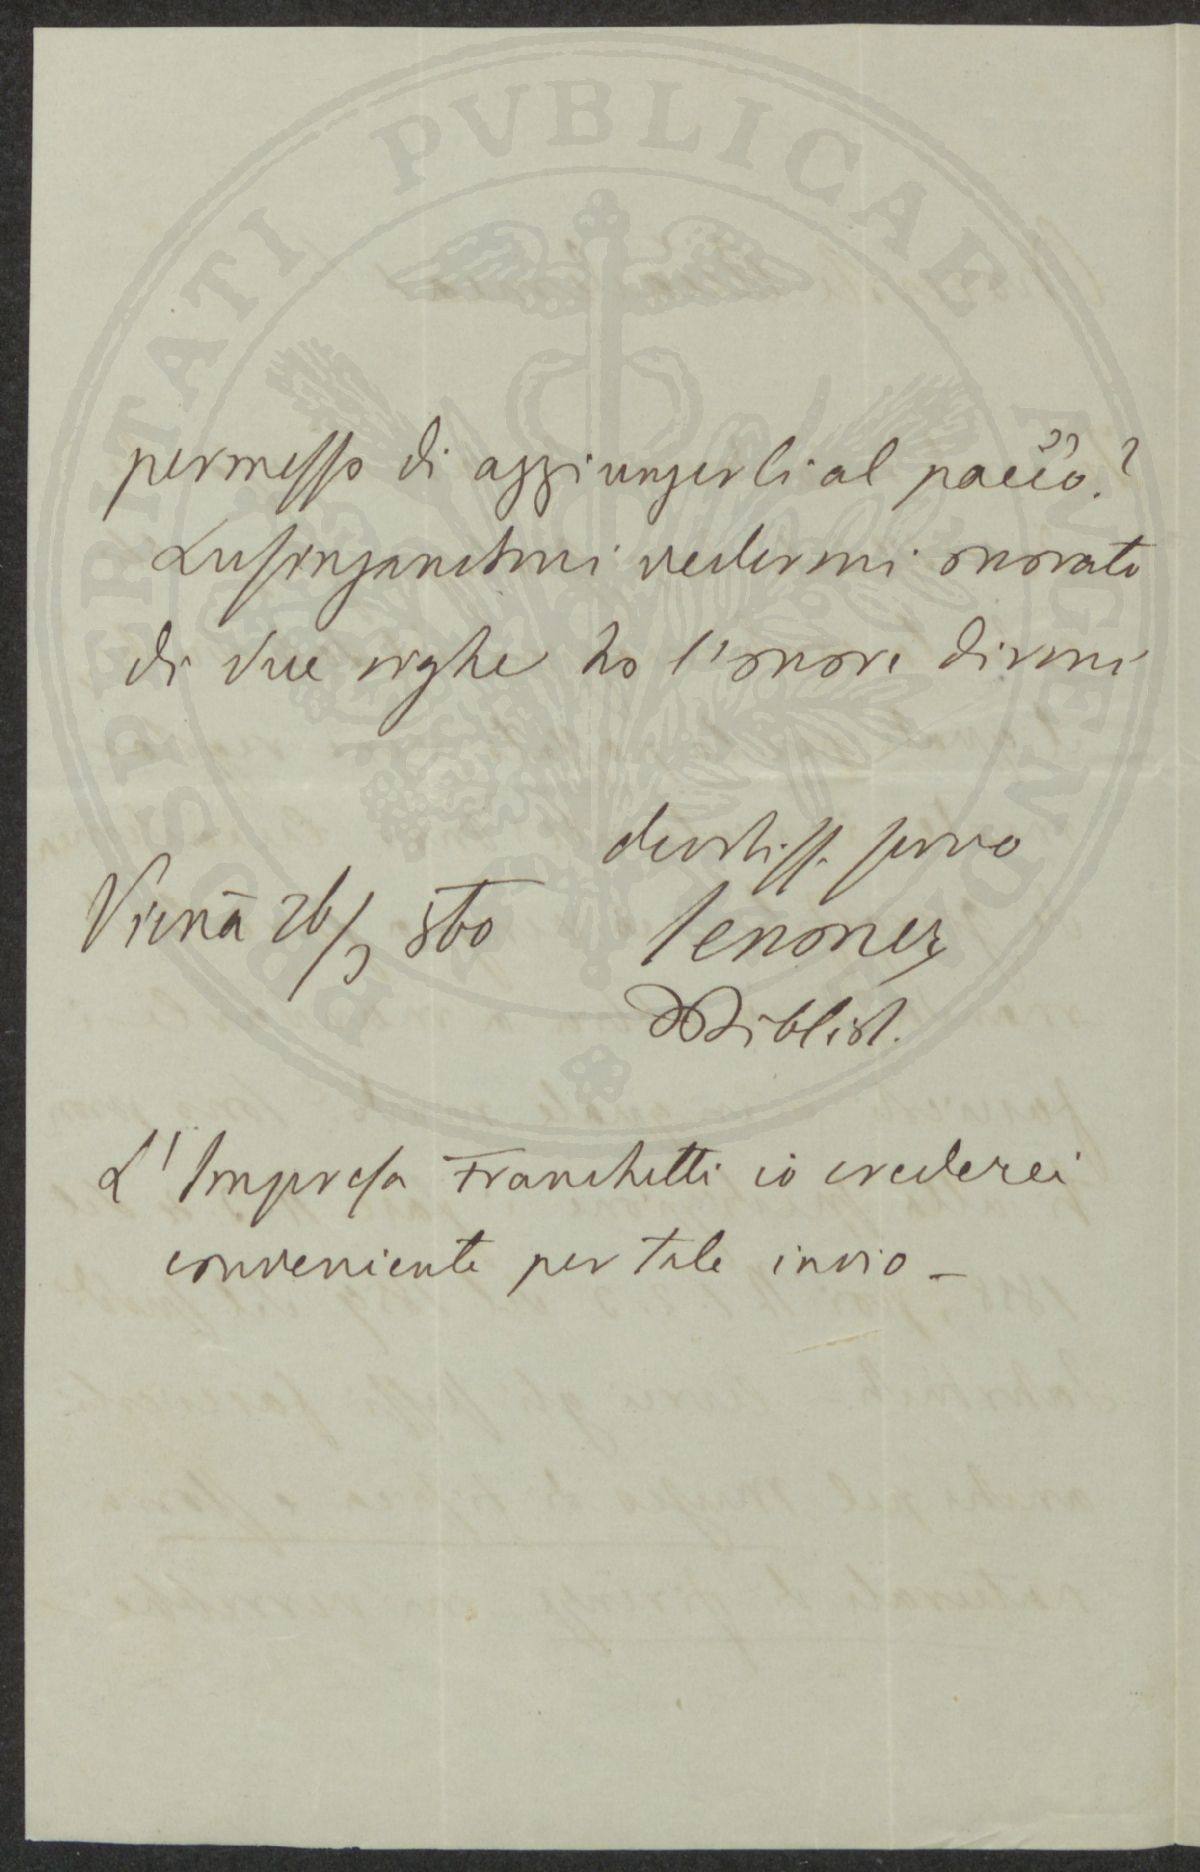 PROSPERITATI PVBLICAE AVGENDAE
permesso di aggiungerli al pacco?
Lusingandomi vedermi onorato
di due righe ho l'onore dirmi
devotiss. servo
Vienā 26/3 860
Senoner
Bibliot.
L'Impresa Franchetti io crederei
conveniente per tale invio _